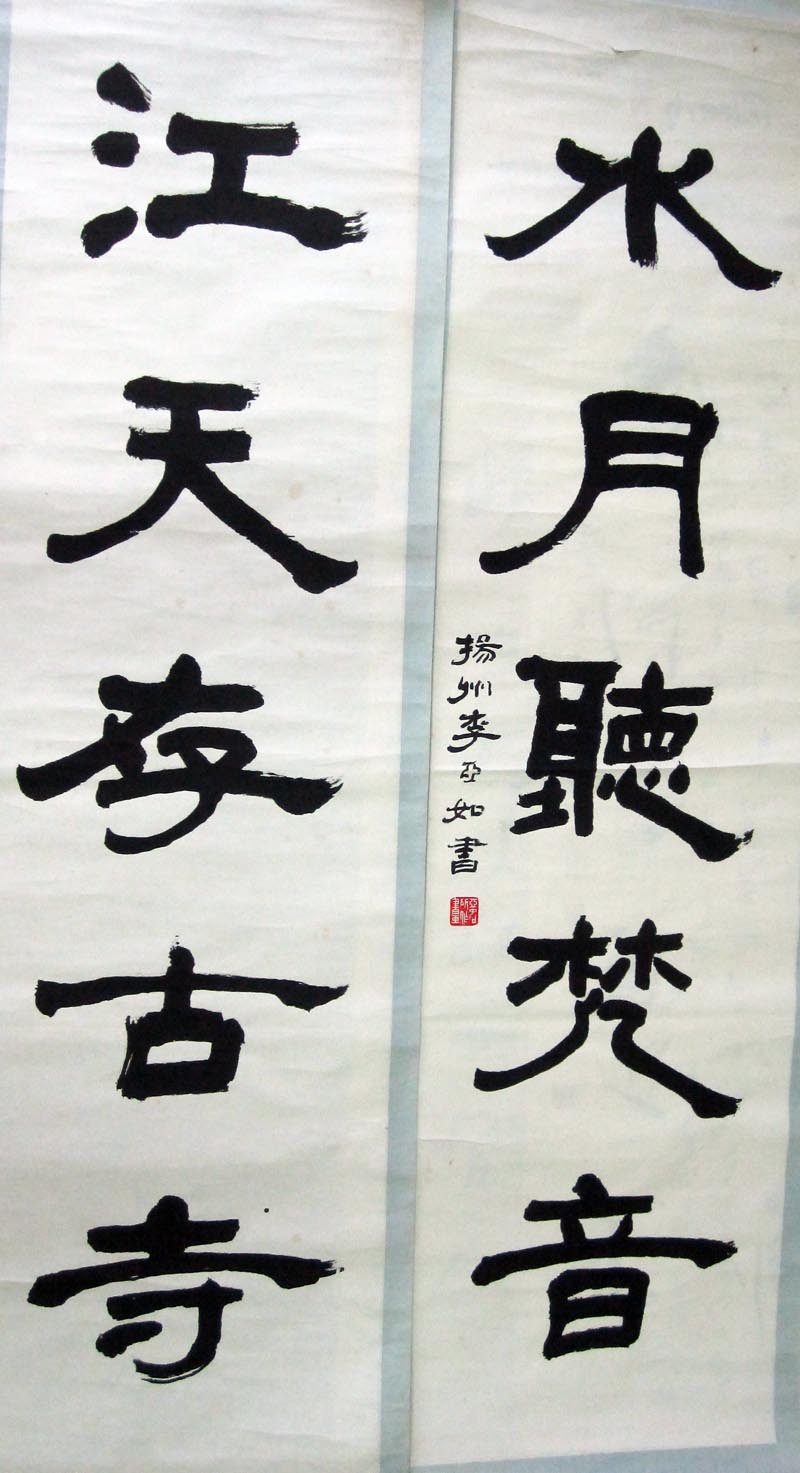 水月聽梵音
揚州李亞如書
江天存古寺